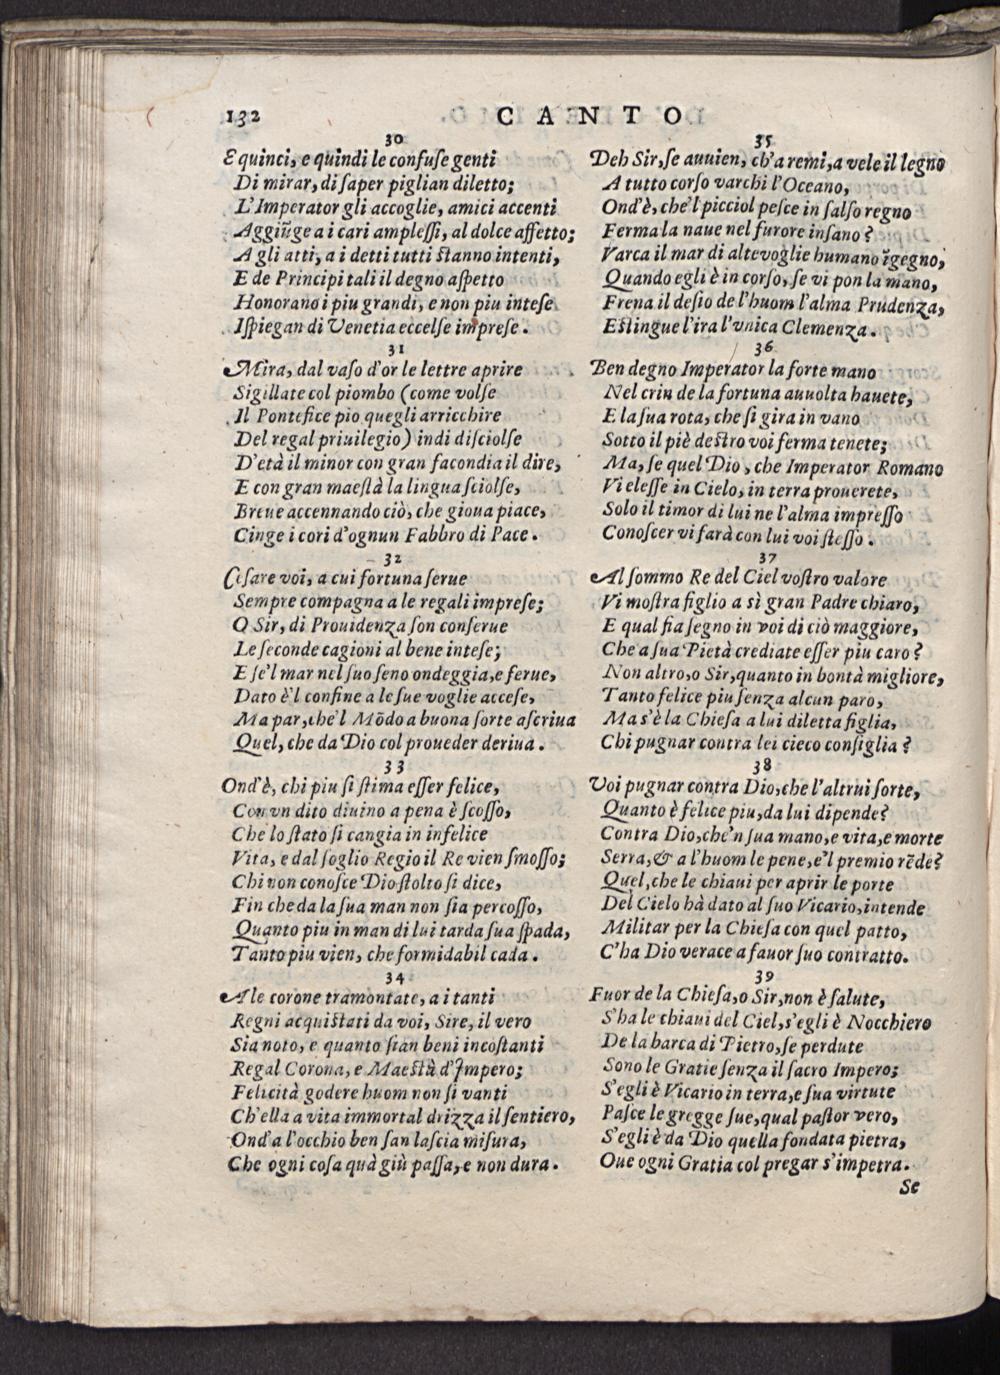 132 CANTO
30
E quinci, e quindi le confuſe genti
Di mirar, di ſaper piglian diletto;
L'Imperator gli accoglie, amici accenti
Aggiũge a i cari ampleſſi, al dolce affetto;
A gli atti, a i detti tutti ſtanno intenti,
E de Principi tali il degno aſpetto
Honorano i piu grandi, e non piu inteſe
Iſpiegan di Venetia eccelſe impreſe.
31
Mira, dal vaſo d'or le lettre aprire
Sigillate col piombo (come volſe
Il Pontefice pio quegli arricchire
Del regal priuilegio) indi diſciolſe
D'età il minor con gran facondia il dire,
E con gran maeſtà la lingua ſciolſe,
Breue accennando ciò, che gioua piace,
Cinge i cori d'ognun Fabbro di Pace.
32
Ceſare voi, a cui fortuna ſerue
Sempre compagna a le regali impreſe;
O Sir, di Prouidenza ſon conſerue
Le ſeconde cagioni al bene inteſe;
E ſe'l mar nel ſuo ſeno ondeggia, e ferue,
Dato è'l confine a le ſue voglie acceſe,
Ma par, che'l Mōdo a buona ſorte aſcriua
Quel, che da Dio col proueder deriua.
33
Ond'è, chi piu ſi ſtima eſſer felice,
Con vn dito diuino a pena è ſcoſſo,
Che lo ſtato ſi cangia in infelice
Vita, e dal ſoglio Regio il Re vien ſmoſſo;
Chi non conoſce Dio ſtolto ſi dice,
Fin che da la ſua man non ſia percoſſo,
Quanto piu in man di lui tarda ſua ſpada,
Tanto piu vien, che formidabil cada.
34
A le corone tramontate, a i tanti
Regni acquiſtati da voi, Sire, il vero
Sia noto, e quanto ſian beni incoſtanti
Regal Corona, e Maeſtà d'Impero;
Felicità godere huom non ſi vanti
Ch'ella a vita immortal drizza il ſentiero,
Ond'a l'occhio ben ſan laſcia miſura,
Che ogni coſa quà giù paſſa, e non dura.
35
Deh Sir, ſe auuien, ch'a remi, a vele il legno
A tutto corſo varchi l'Oceano,
Ond'è, che'l picciol peſce in ſalſo regno
Ferma la naue nel furore inſano?
Varca il mar di alte voglie humano ĩgegno,
Quando egli è in corſo, ſe vi pon la mano,
Frena il deſio de l'huom l'alma Prudenza,
Eſtingue l'ira l'vnica Clemenza.
36
Ben degno Imperator la forte mano
Nel crin de la fortuna auuolta hauete,
E la ſua rota, che ſi gira in vano
Sotto il piè deſtro voi ferma tenete;
Ma, ſe quel Dio, che Imperator Romano
Vi eleſſe in Cielo, in terra prouerete,
Solo il timor di lui ne l'alma impreſſo
Conoſcer vi farà con lui voi ſteſſo.
37
Al ſommo Re del Ciel voſtro valore
Vi moſtra figlio a sì gran Padre chiaro,
E qual fia ſegno in voi di ciò maggiore,
Che a ſua Pietà crediate eſſer piu caro?
Non altro, o Sir, quanto in bontà migliore,
Tanto felice piu ſenza alcun paro,
Ma s'è la Chieſa a lui diletta figlia,
Chi pugnar contra lei cieco conſiglia?
38
Voi pugnar contra Dio, che l'altrui ſorte,
Quanto è felice piu, da lui dipende?
Contra Dio, che'n ſua mano, e vita, e morte
Serra, & a l'huom le pene, e'l premio rēde?
Quel, che le chiaui per aprir le porte
Del Cielo hà dato al ſuo Vicario, intende
Militar per la Chieſa con quel patto,
C'ha Dio verace a fauor ſuo contratto.
39
Fuor de la Chieſa, o Sir, non è ſalute,
S'ha le chiaui del Ciel, s'egli è Nocchiero
De la barca di Pietro, ſe perdute
Sono le Gratie ſenza il ſacro Impero;
S'egli è Vicario in terra, e ſua virtute
Paſce le gregge ſue, qual paſtor vero,
S'egli è da Dio quella fondata pietra,
Oue ogni Gratia col pregar s'impetra.
Se